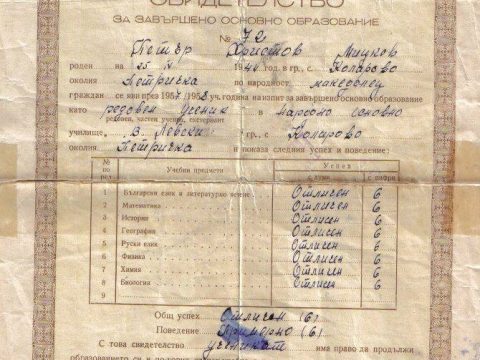 СВИДЕТЕЛСТВО
ЗА ЗАВЪРШЕНО ОСНОВНО ОБРАЗОВАНИЕ
№ 72
Петър Христов Мицков
роден на 25 IV год. в гр., с. Коларово
околия Петричка по народност македонец
се яви през 1957/1958 уч. година на изпит за завършено основно образование
като редовен ученик в народно основно
редовен, частен ученик,
училище „В. Левски" гр., с. Коларово
околия Петричка и показа следния успех и поведение:
№ по ред Учебни предмети Успех
с думи с цифри
1 Български език и литературно четене Отличен 6
2 Математика Отличен 6
3 История Отличен 6
4 География Отличен 6
5 Руски език Отличен 6
6 Физика Отличен 6
7 Химия Отличен 6
8 Биология Отличен 6
9
Общ успех Отличен (6)
Поведение Примерно (6)
С това свидетелство ученикът има право да продължи
образованието си